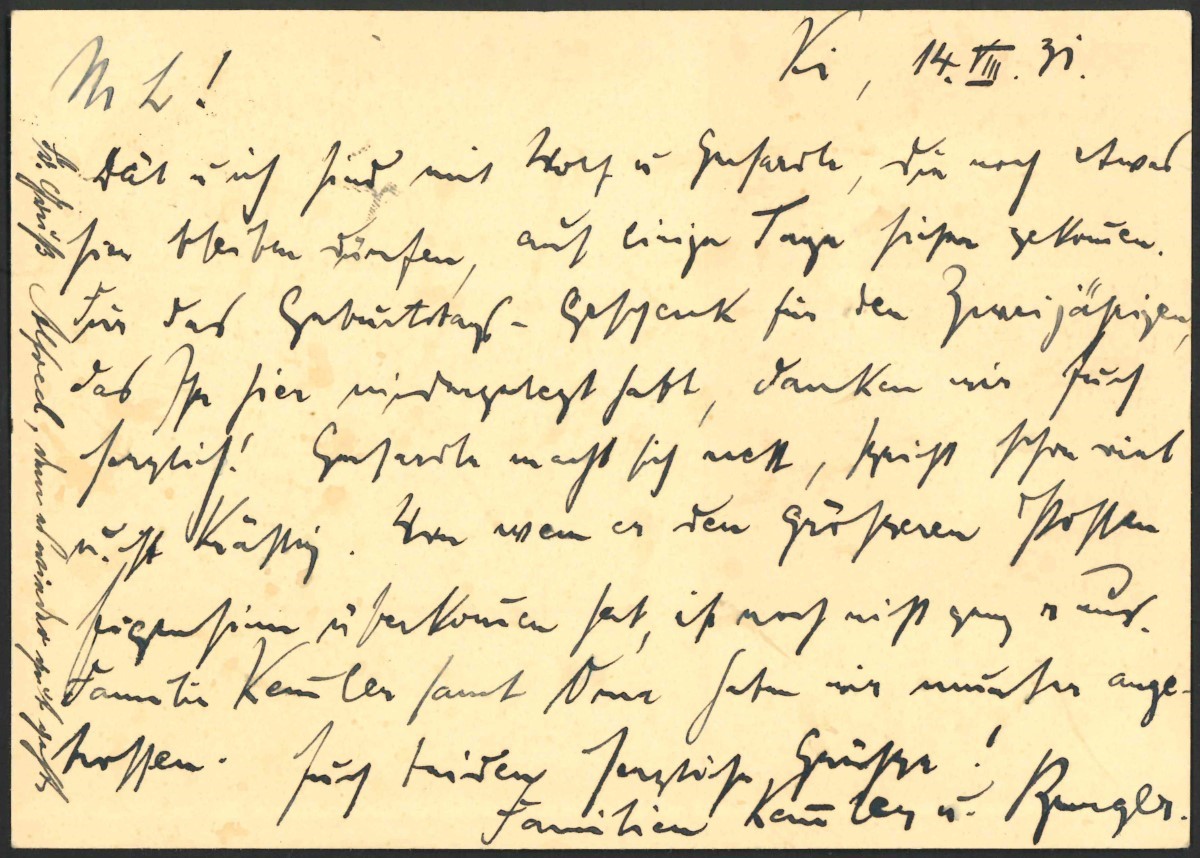 M L!
Ki, 14. VIII. 31.
u ich sind mit Wolf u Gerhardli, die noch etwas
hier bleiben dürfen, auf einige Tage hieher gekom̄en.
Für das Geburtstags-Geschenk für den Zweijährigen,
das Ihr hier niedergelegt habt, danken wir Euch
herzlich! Gerhardli macht sich nett, spricht schon viel
u. ist kräftig. Von wem er den größeren
Eigensinn überkom̄en hat, ist noch nicht ganz raus.
Familie samt Oma haben wir munter ange-
troffen. Euch beiden herzliche Grüsse!
Familien u.
Alfred,